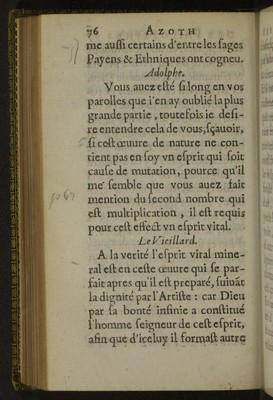 76 AZOTH
me auſſi certains d'entre les ſages
Payens & Ethniques ont cogneu.
Adolphe.
Vous auez eſté ſi long en vos
parolles que i'en ay oublié la plus
grande partie, toutesfois ie deſi-
re entendre cela de vous, ſçauoir,
ſi ceſt œuure de nature ne con-
tient pas en ſoy vn eſprit qui ſoit
cauſe de mutation, pource qu'il
me ſemble que vous auez fait
mention du ſecond nombre qui
eſt multiplication, il eſt requis
pour ceſt effect vn eſprit vital.
Le Vieillard.
A la verité l'eſprit vital mine-
ral eſt en ceſte œuure qui ſe par-
fait apres qu'il eſt preparé, ſuiuãt
la dignité par l'Artiſte : car Dieu
par ſa bonté infinie a conſtitué
l'homme ſeigneur de ceſt eſprit,
afin que d'iceluy il formaſt autre